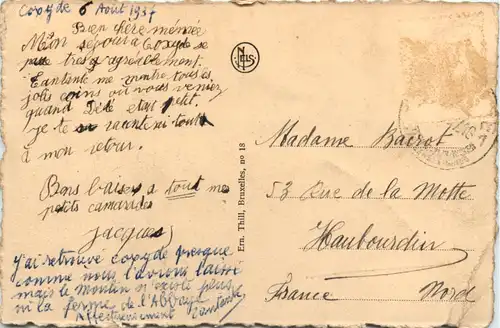 Coxyde 6 Août 1937
Bien chère mémée
Mon séjour à Coxyde se
passe très agréablement.
Tantante me montre tous les
jolis coins où vous veniez
quand Dédé etait petit.
je te racanterai tout
à mon retour.
Bons baisers a tout mes
petits camarades
Jacques
j'ai retrouvé Coxyde presque
comme nous l'avions laissé
mais le Moulin n'existe plus
ni la ferme de l'Abbaye
Affectueusement Tantante
NELS
Ern. Thill, Bruxelles, no 18
Madame Bairot
53 Rue de la Motte
Haubourdin
France Nord